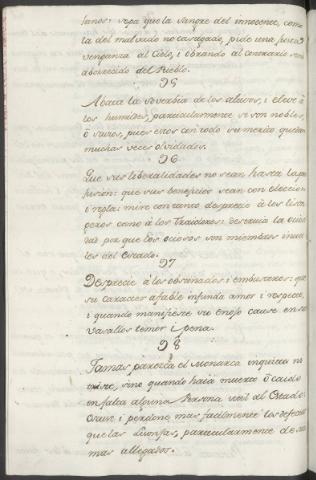 lanos: sepa que la sangre del innocente, como
la del malvado no castigado, pide una justa
venganza al Cielo, i obrando al contrario será
aborrecido del Pueblo.
95
Abata la sobervia de los altivos, i eleve á
los humildes, particularmente si son nobles,
ó savios, pues estos con todo su merito quedan
muchas veces olvidados.
96
Que sus liberalidades no sean hasta la pro
fusion: que sus beneficios sean con eleccion
i regla: mire con tanto desprecio á los lison
geros como á los Traidores: destruia la ocio
dad por que los ociosos son miembros inuti
les del Estado.
97
Desprecie á los obstinados i embusteros: que
su caracter afable infunda amor i respeto,
i quando manifieste su enojo cause en sus
vasallos temor i pena.
98
Jamas paresca el Monarca inquieto ni
triste, sino quando haia muerto ó caido
en falta alguna Persona util al Estado.
Oculte i perdone mas facilmente los defectos
que las de sus
mas allegados.